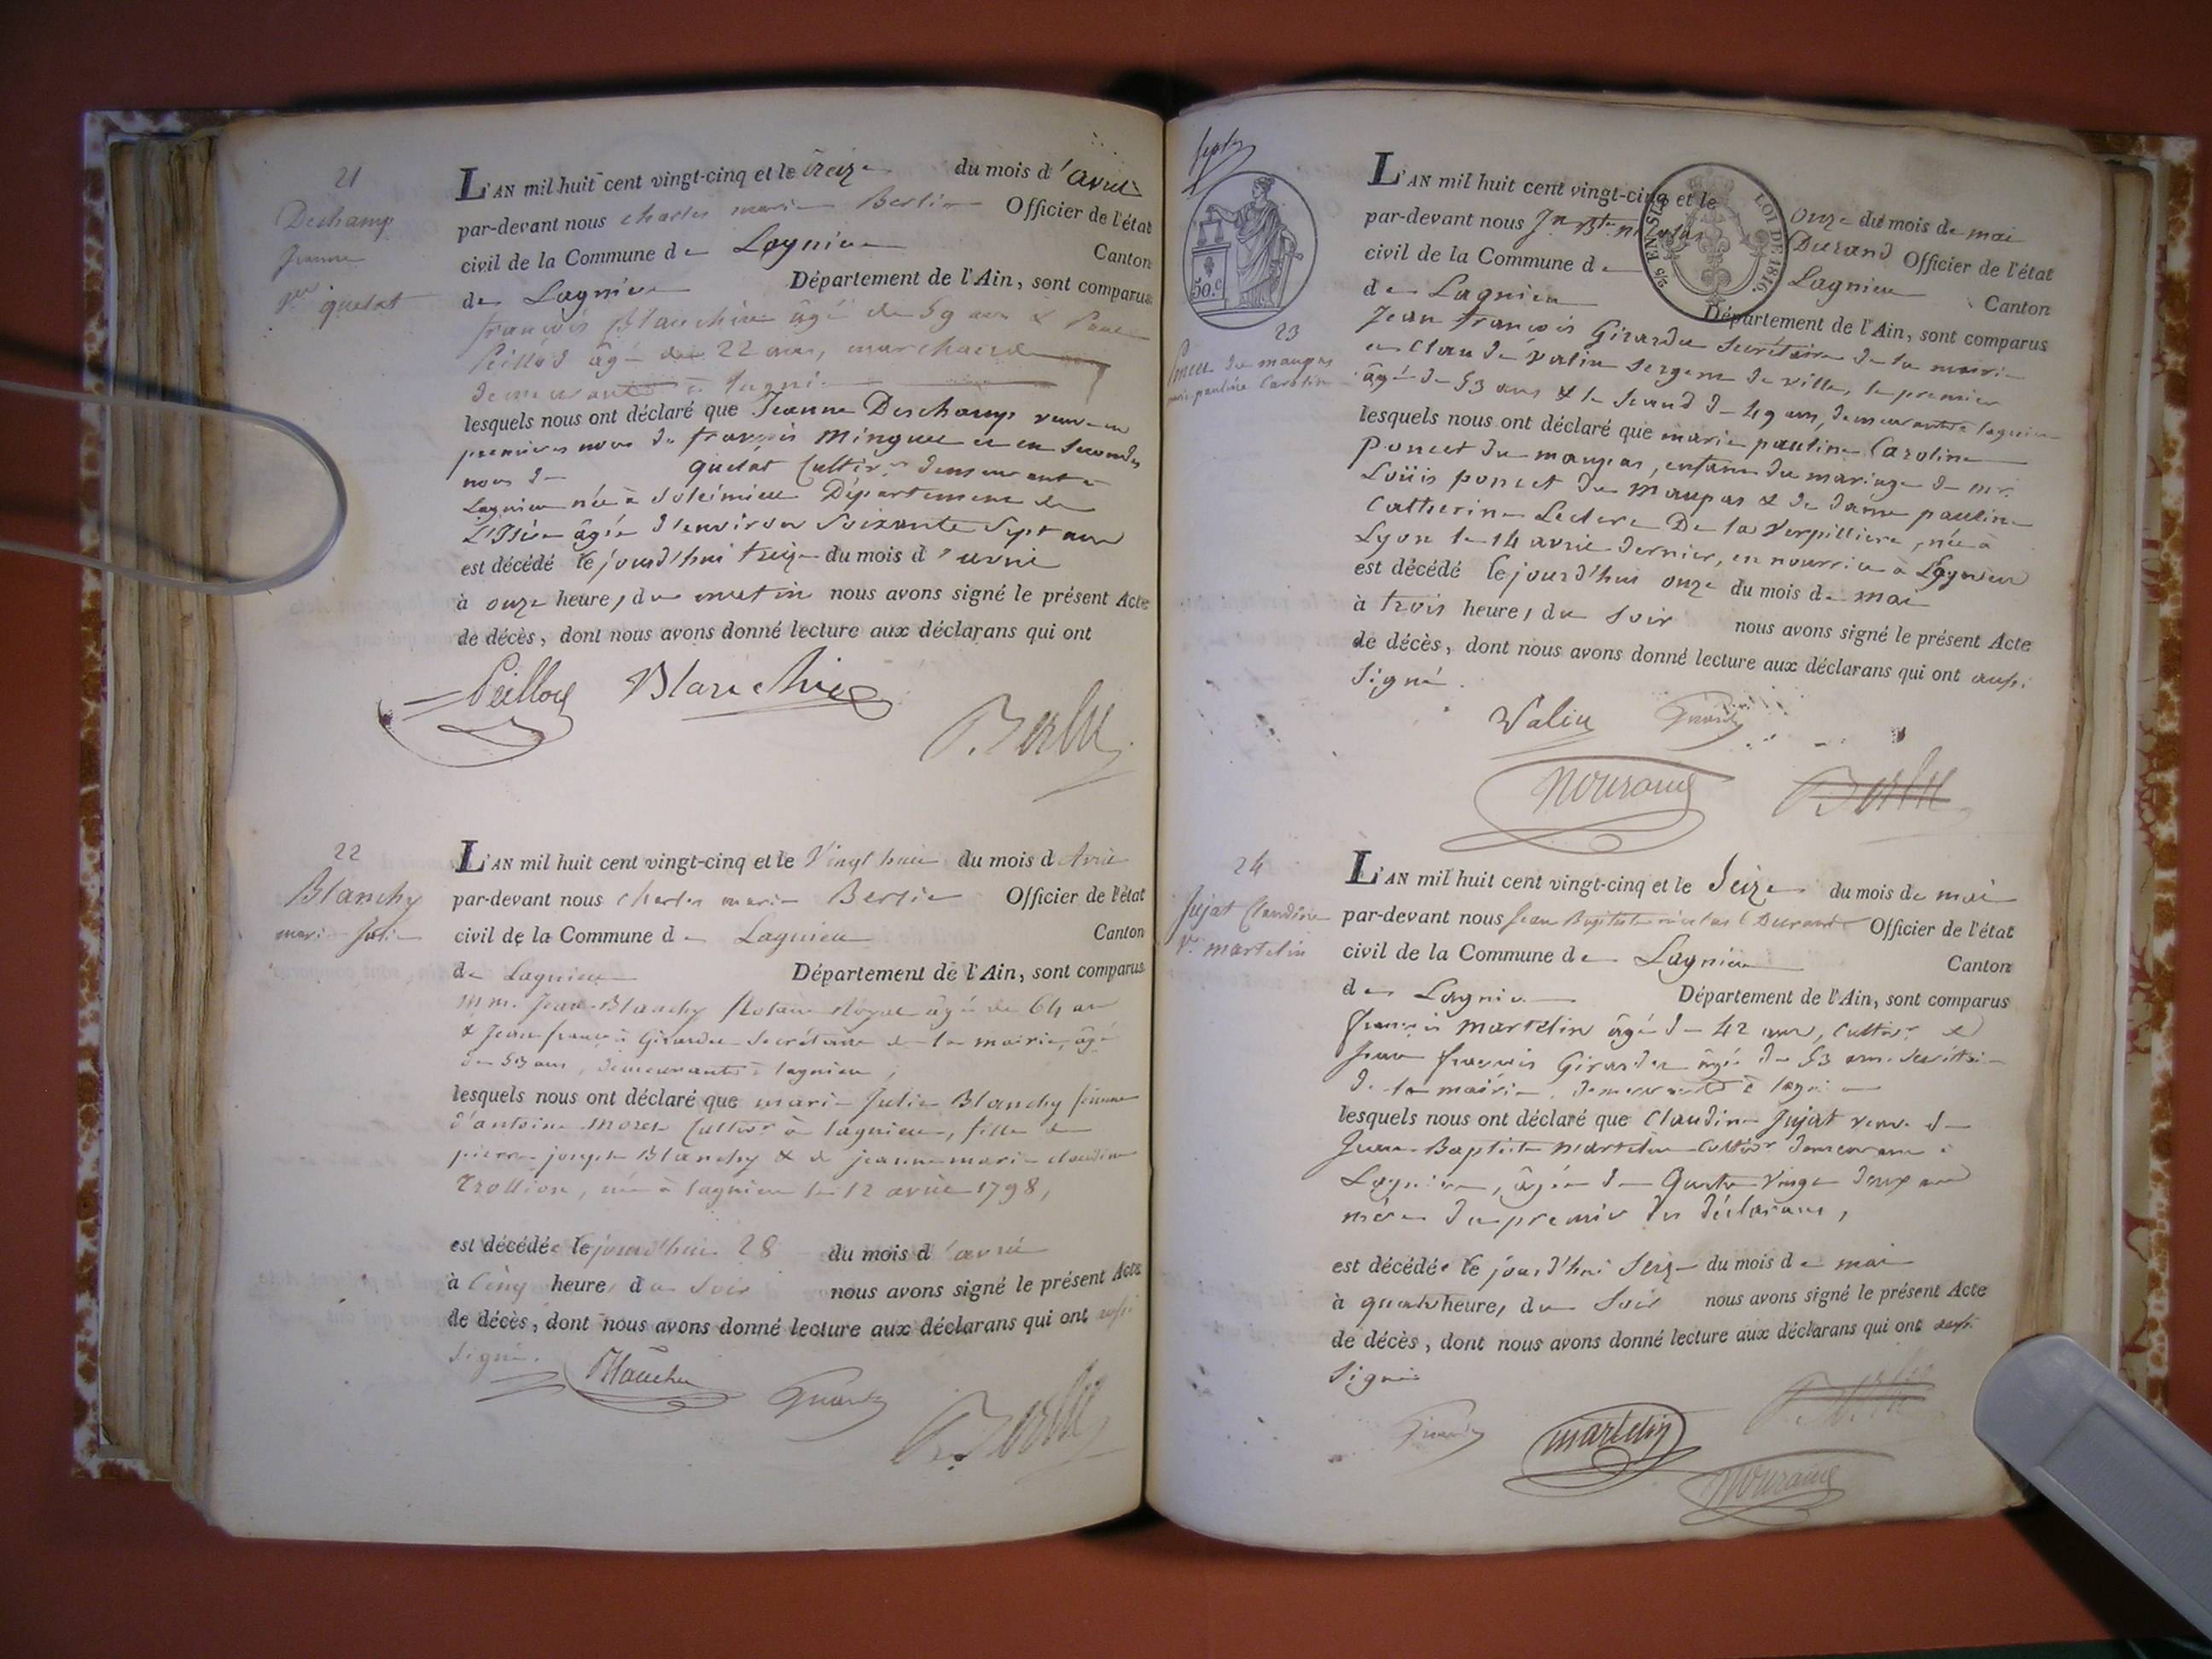 21
Deschamp
Jeanne
quelat
L'AN mil huit cent vingt-cinq et le treize du mois d'avril
par-devant nous charles marie Berlie Officier de l'état
civil de la Commune de Lagnieu Canton
de Lagnieu Département de l'Ain, sont comparus
françois Blanchin âgé de 59 ans &
Peillod âgé de 22 ans, marchands
demeurants à Lagnieu
lesquels nous ont déclaré que Jeanne Deschamp veuve en
premieres noces de françois Minguet et en secondes
noces de quelat Cultivr demeurant à
Lagnieu née à Soleimieu Département de
L'Isère âgée d'environ Soixante Sept ans
est décédé le jourd'hui treize du mois d'avril
à onze heures du matin nous avons signé le présent Acte
de décès, dont nous avons donné lecture aux déclarans qui ont
Peillod Blanchin
Berlie
22
Blanchy
marie Julie
L'AN mil huit cent vingt-cinq et le Vingt huit du mois d Avril
par-devant nous charles marie Berlie Officier de l'état
civil de la Commune de Lagnieu Canton
de Lagnieu Département de l'Ain, sont comparus
Mm. Jean Blanchy Notaire Royal âgé de 64 ans
& Jean françois Girardet Secrétaire de la mairie, âgé
de 53 ans, demeurants à lagnieu,
lesquels nous ont déclaré que marie Julie Blanchy femme
d'antoine Morel Cultivr à lagnieu, fille de
pierre joseph Blanchy & de jeanne marie claudine
Trollion, née à lagnieu le 12 avril 1798,
est décédée le jourd'hui 28 du mois d'avril
à Cinq heures du Soir nous avons signé le présent Acte
de décès, dont nous avons donné lecture aux déclarans qui ont aussi
signé.
Blanchy Girardet
Berlie
50.c
5/6 EN SUS LOI DE 1816.
L'AN mil huit cent vingt-cinq et le onze du mois de mai
par-devant nous Jn Bte nicolas Durand Officier de l'état
civil de la Commune de Lagnieu Canton
de Lagnieu Département de l'Ain, sont comparus
23
Poncet du maupas
marie pauline Caroline
Jean François Girardet Secrétaire de la mairie
et Claude Valin Sergent de ville, le premier
âgé de 53 ans & le Second de 49 ans, demeurants à lagnieu
lesquels nous ont déclaré que marie pauline Caroline
poncet du maupas, enfant du mariage de mr.
Loüis poncet du Maupas & de dame pauline
Catherine Leclerc De la Verpilliere, née à
Lyon le 14 avril dernier, en nourrice à Lagnieu
est décédé le jourd'hui onze du mois de mai
à trois heures du Soir nous avons signé le présent Acte
de décès, dont nous avons donné lecture aux déclarans qui ont aussi
Signé.
Valin Girardet
Berlie
24
Jujat Claudine
Ve martelin
L'AN mil huit cent vingt-cinq et le Seize du mois de mai
par-devant nous Jean Baptiste nicolas Durand Officier de l'état
civil de la Commune de Lagnieu Canton
de Lagnieu Département de l'Ain, sont comparus
françois Martelin âgé de 42 ans, Cultivr &
Jean françois Girardet âgé de 53 ans Secrétaire
de la mairie, demeurants à lagnieu
lesquels nous ont déclaré que Claudine Jujat veuve de
Jean-Baptiste Martelin Cultivr demeurant à
Lagnieu, âgée de Quatre Vingt deux ans
mère du premier des déclarans,
est décédée le jourd'hui Seize du mois de mai
à quatre heures, du Soir nous avons signé le présent Acte
de décès, dont nous avons donné lecture aux déclarans qui ont aussi
Signé
Berlie
Girardet martelin